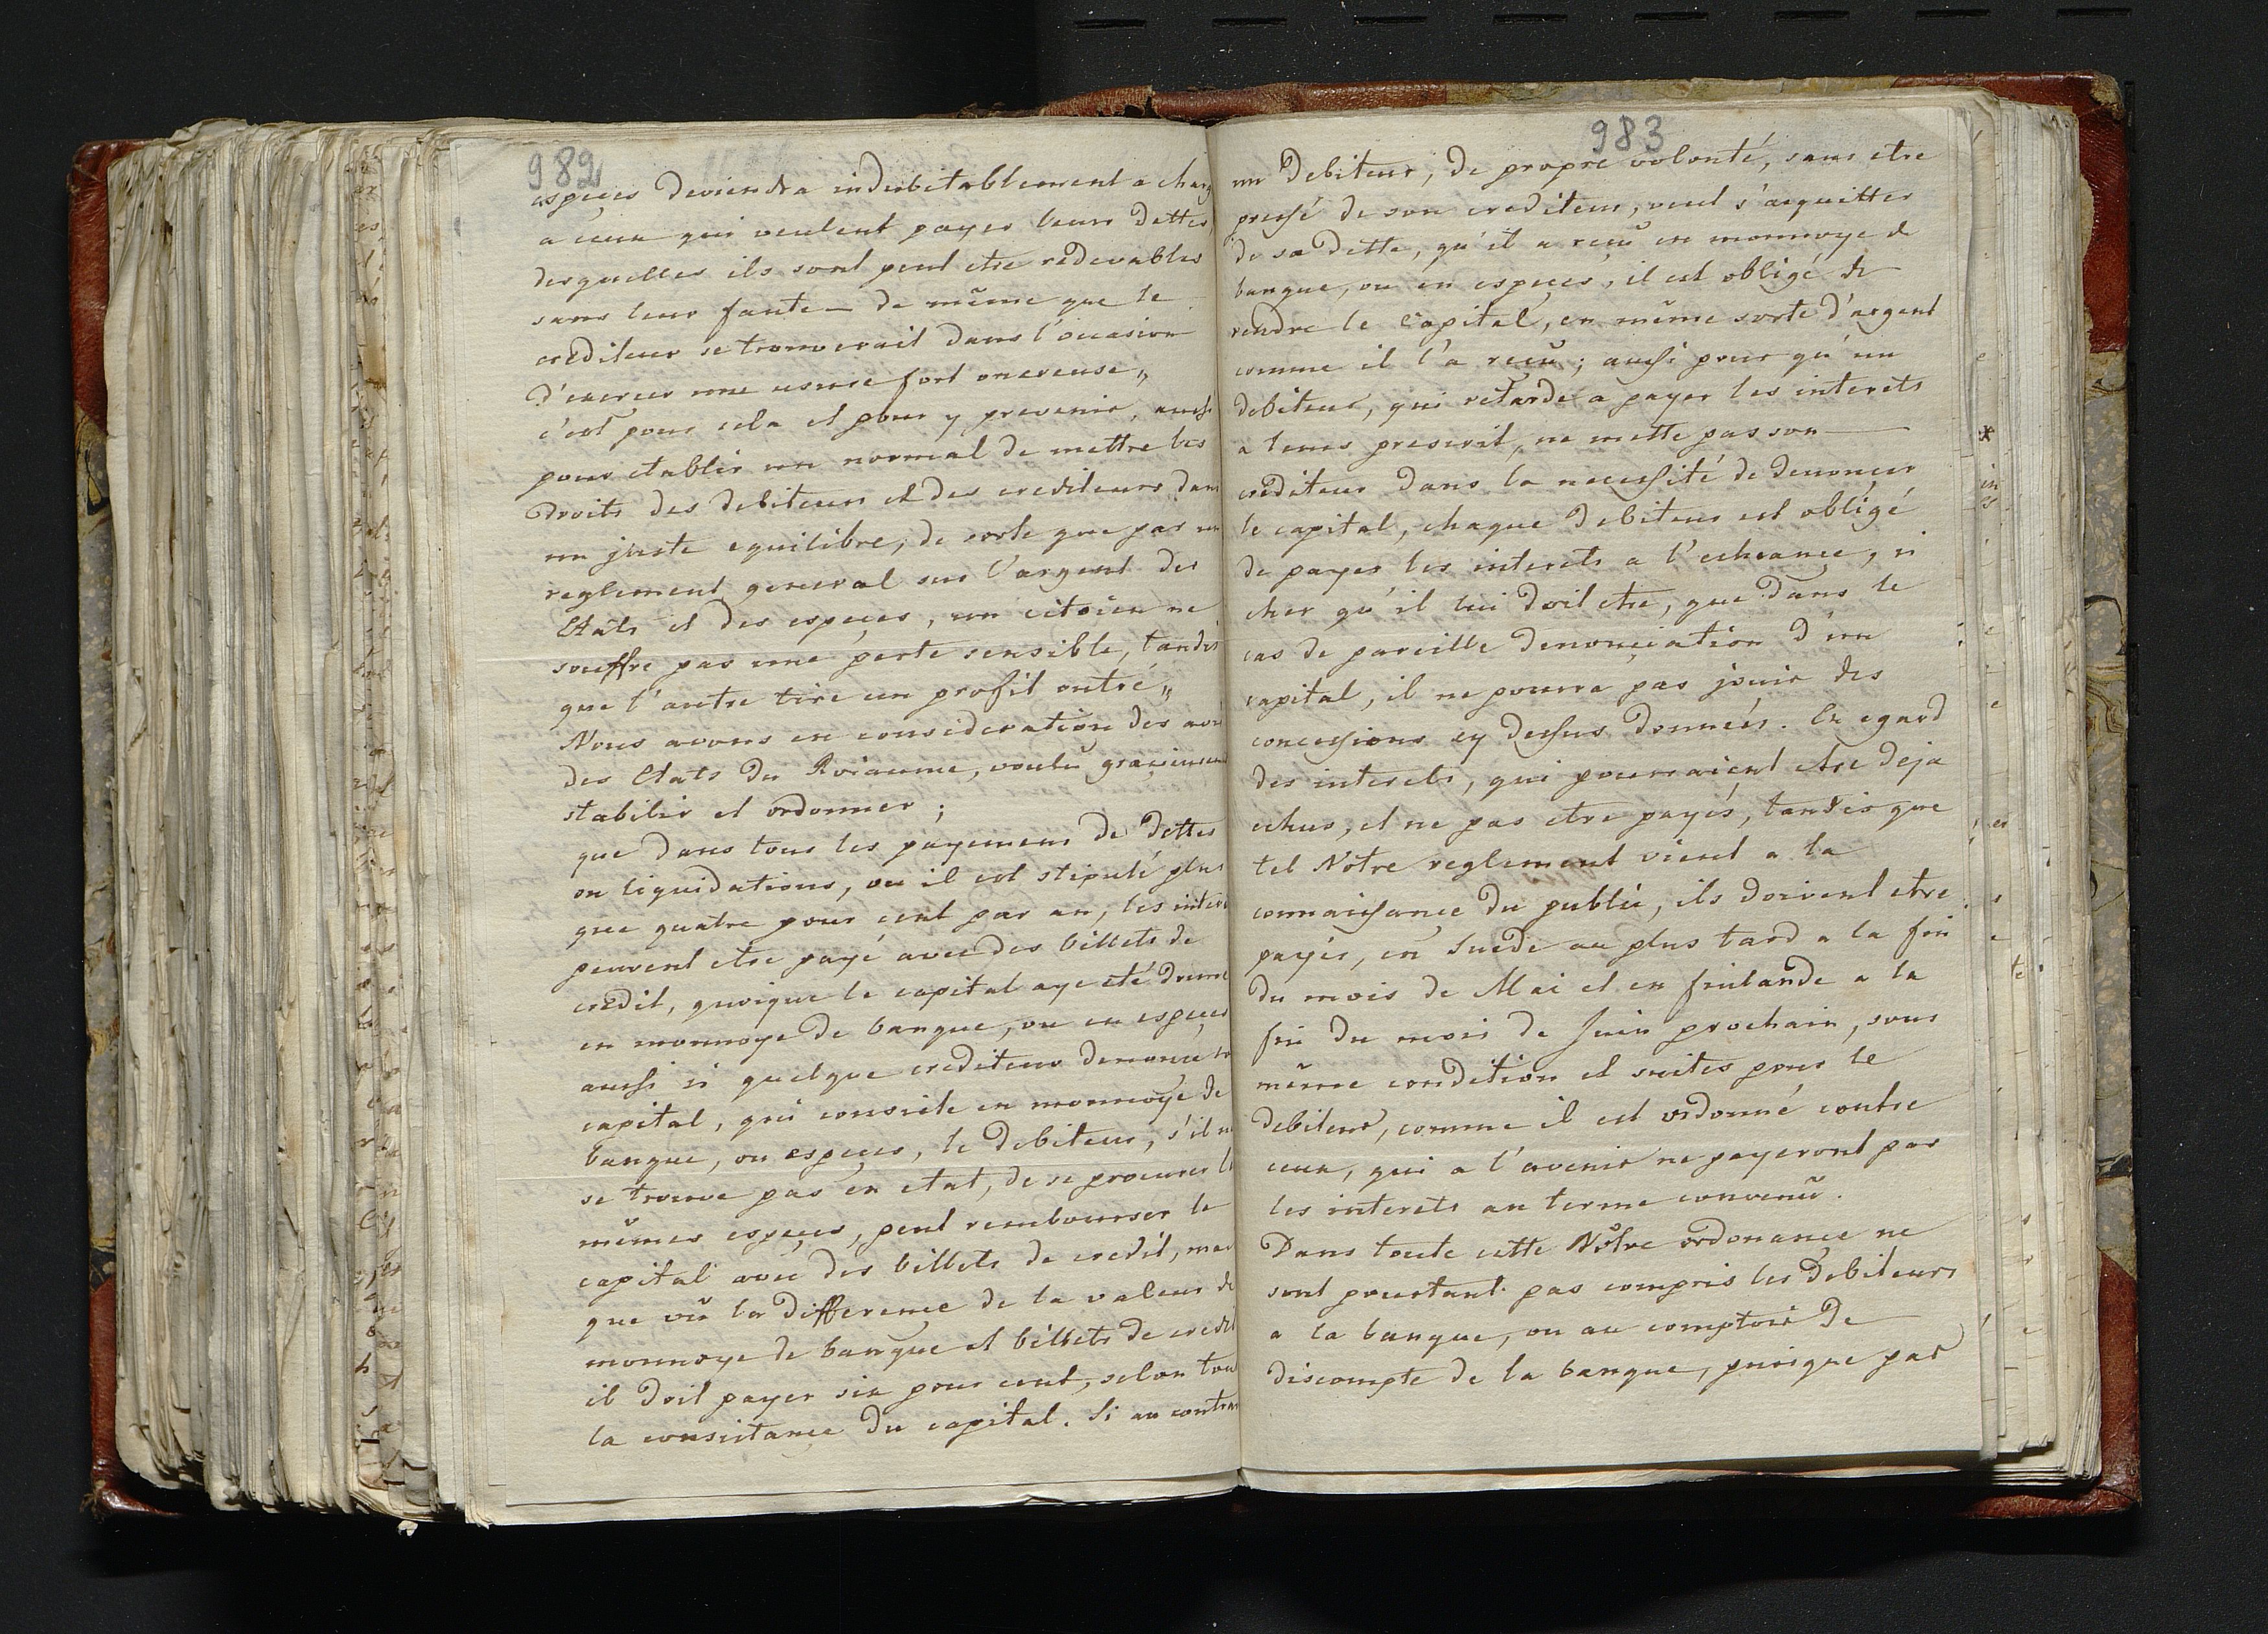 982
especes deviendra indubitablement a charg
a ceux qui veulent payer leurs dettes
desquelles ils sont peut etre redevables
sans leur faute — de même que le
crediteur se trouverait dans l'occasion
d'exercer une usure fort onereuse,,
c'est pour cela et pour y prevenir, aussi
pour etablir un normal de mettre les
droits des debiteurs et des crediteurs dans
un juste equilibre, de sorte que par un
reglement general sur l'argent des
Etats et des especes, un citoien ne
souffre pas une perte sensible, tandis
que l'autre tire un profit outré,,
Nous avons en consideration des avis
des Etats du Roiaume, voulu gracieusem
stabilir et ordonner;
que dans tous les payemens de dettes
ou liquidations, ou il est stipulé plus
que quatre pour cent par an, les inter
peuvent etre payé avec des billets de
credit, quoique le capital aye eté donné
en monnoye de banque, ou en especes
aussi si quelque crediteur denonce le
capital, qui consiste en monnoye de
banque, ou especes, le debiteur, s'il n
se trouve pas en etat, de se procurer le
mêmes especes, peut rembourser le
capital avec des billets de credit, mai
que vû la difference de la valeur de
monnoye de banque et billets de credit
il doit payer six pour cent, selon tou
la consistance du capital. Si au contrai
983
un debiteur, de propre volonté, sans etre
pressé de son crediteur, veut s'acquitter
de sa dette, qu'il a reçu en monnoye de
banque, ou en especes, il est obligé de
rendre le capital, en même sorte d'argent
comme il l'a reçû; aussi pour qu'un
debiteur, qui retarde a payer les interets
a tems prescrit, ne mette pas son
crediteur dans la necessité de denoncer
le capital, chaque debiteur est obligé
de payer les interets a l'echeance, si
cher qu'il lui doit etre, que dans le
cas de pareille denonciation d'un
capital, il ne pourra pas jouir des
concessions cy dessus données. En egard
des interets, qui pourraient etre deja
echus, et ne pas etre payés, tandis que
tel Notre reglement vient a la
connaissance du public, ils doivent etre
payés, en Suede au plus tard a la fin
du mois de Mai et en finlande a la
fin du mois de Juin prochain, sous
même condition et suites pour le
debiteur, comme il est ordonné contre
ceux, qui a l'avenir ne payeront pas
les interets au terme convenû.
Dans toute cette Nôtre ordonance ne
sont pourtant pas compris les debiteurs
a la banque, ou au comptoir de
discompte de la banque, puisque par